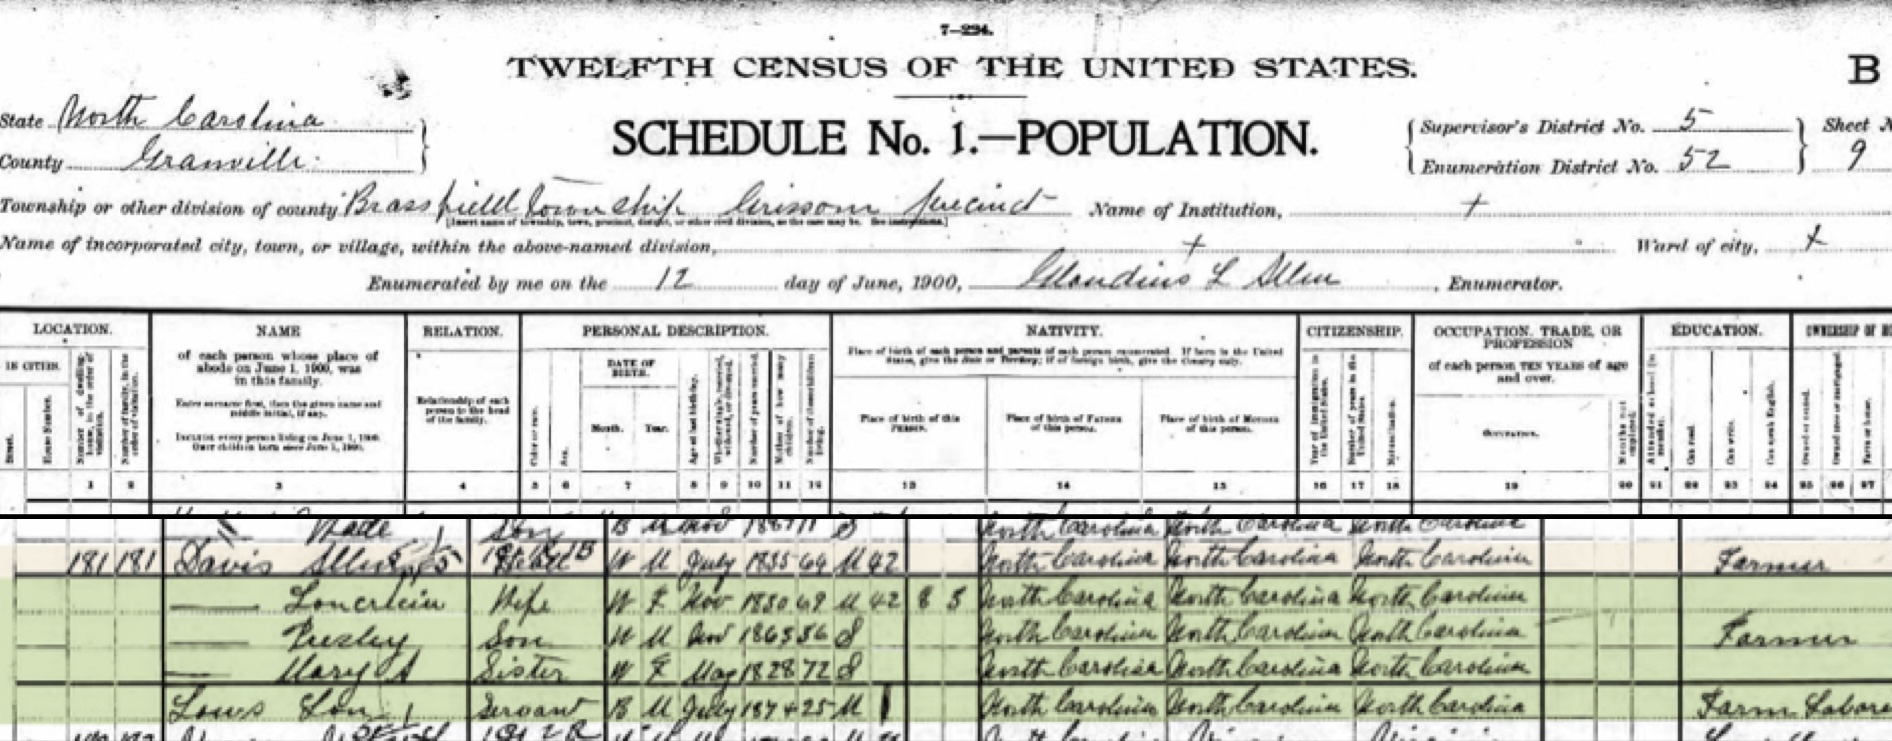 7—224.
TWELFTH CENSUS OF THE UNITED STATES.
B
State North Carolina
County Granville
SCHEDULE No. 1.—POPULATION.
Supervisor's District No. 5
Enumeration District No. 52
Sheet N
9
Township or other division of county Brassfield Township Grissom Precinct
Name of Institution, +
[Insert name of township, town, precinct, district, or other civil division, as the case may be. See instructions.]
Name of incorporated city, town, or village, within the above-named division, +
Ward of city, +
Enumerated by me on the 12 day of June, 1900, L Allen, Enumerator.
LOCATION. NAME RELATION. PERSONAL DESCRIPTION. NATIVITY. CITIZENSHIP. OCCUPATION, TRADE, OR PROFESSION EDUCATION. OWNERSHIP OF HO
IN CITIES.
Street.
House Number.
Number of dwelling-house, in the order of visitation.
Number of family, in the order of visitation.
of each person whose place of abode on June 1, 1900, was in this family.
Enter surname first, then the given name and middle initial, if any.
INCLUDE every person living on June 1, 1900. OMIT children born since June 1, 1900.
Relationship of each person to the head of the family.
Color or race.
Sex.
DATE OF BIRTH.
Month. Year.
Age at last birthday.
Whether single, married, widowed, or divorced.
Number of years married.
Mother of how many children.
Number of these children living.
Place of birth of each person and parents of each person enumerated. If born in the United States, give the State or Territory; if of foreign birth, give the Country only.
Place of birth of this PERSON.
Place of birth of FATHER of this person.
Place of birth of MOTHER of this person.
Year of immigration to the United States.
Number of years in the United States.
Naturalization.
of each person TEN YEARS of age and over.
OCCUPATION.
Months not employed.
Attended school (in months).
Can read.
Can write.
Can speak English.
Owned or rented.
Owned free or mortgaged.
Farm or home.
1 2 3 4 5 6 7 8 9 10 11 12 13 14 15 16 17 18 19 20 21 22 23 24 25 26 27
Wade Son B M Nov 1887 11 S North Carolina North Carolina North Carolina
181 181 Davis W M July 1835 64 M 42 North Carolina North Carolina North Carolina Farmer
— Wife W F Nov 1830 69 M 42 8 5 North Carolina North Carolina North Carolina
— Presley Son W M Nov 1863 36 S North Carolina North Carolina North Carolina Farmer
— Mary A Sister W F May 1828 72 S North Carolina North Carolina North Carolina
Servant B M July 1874 25 M 1 North Carolina North Carolina North Carolina Farm Labore